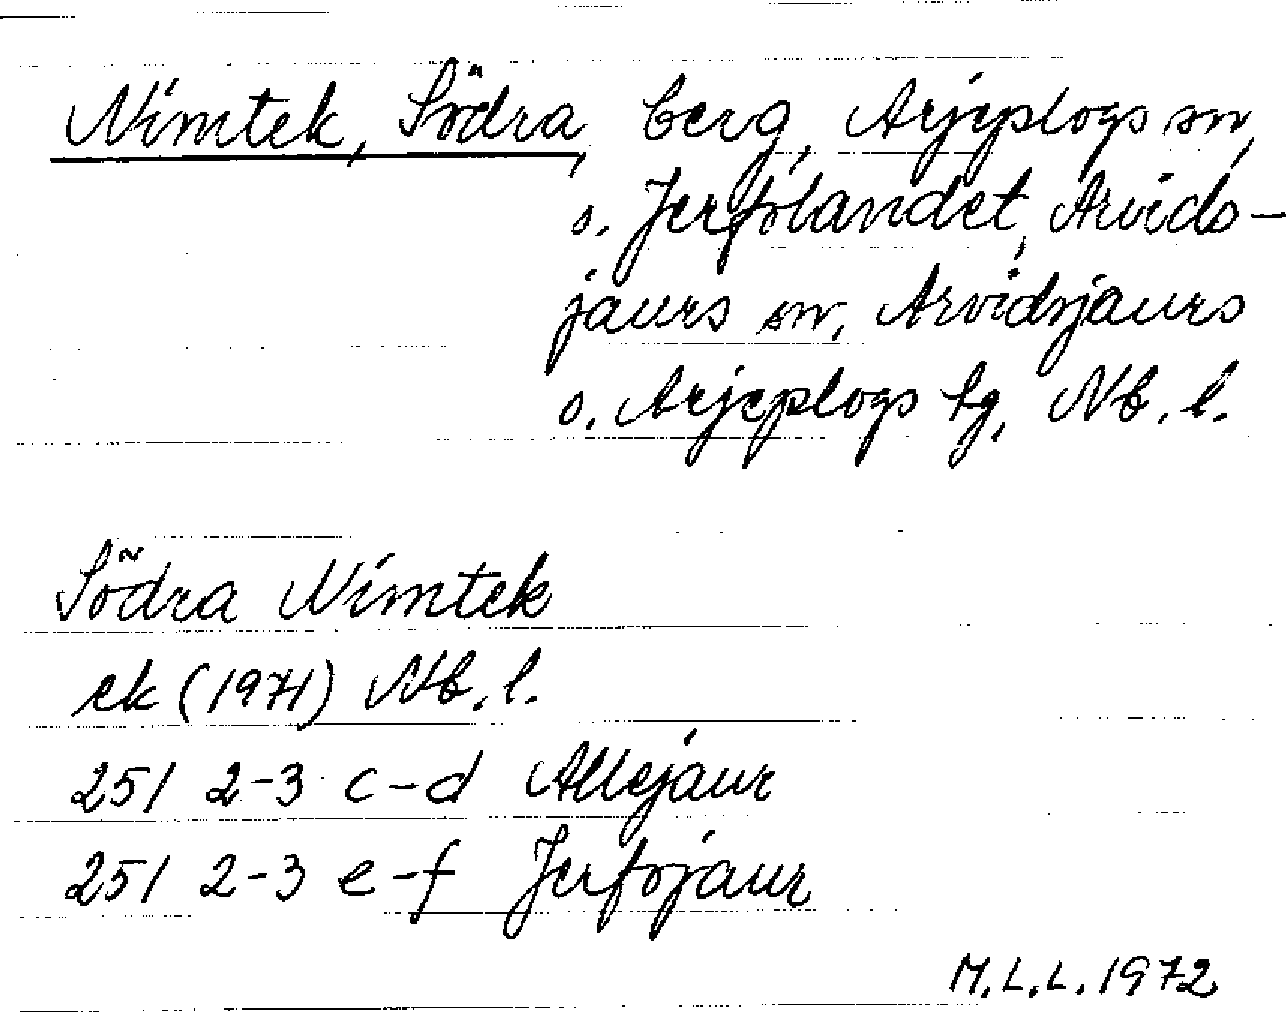 Nimtek, Södra, berg, Arjeplogs sn,
o. Jerfolandet, Arvids-
jaurs sn, Arvidsjaurs
o. Arjeplogs tg, Nb. l.
Södra Nimtek
ek (1971) Nb. l.
251 2-3 c-d Allejaur
251 2-3 e-f Jerfojaur
M.L.L. 1972